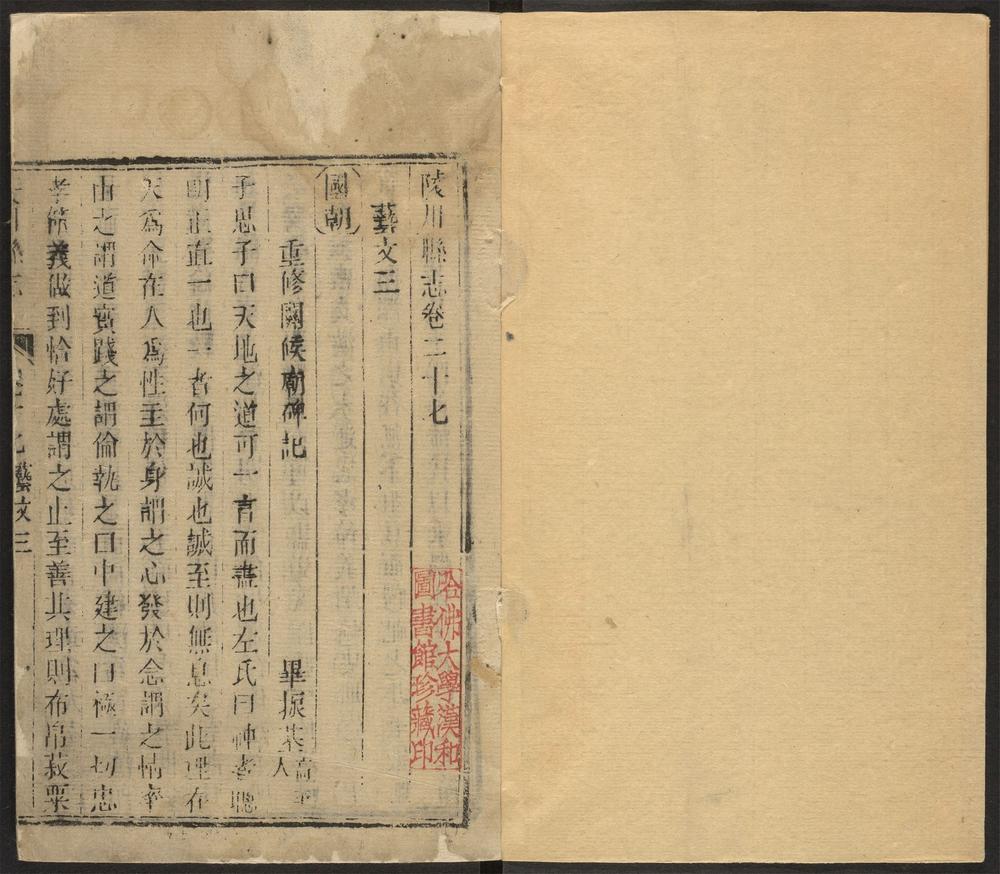 陵川縣志卷二十七
藝文三
國朝
重修關侯廟碑記
畢振基高平人
子思子曰天地之道可一言而盡也左氏曰神者聰
明正直一也一者何也誠也誠至則無息矣此理在
天爲命在人爲性主於身謂之心發於念謂之情率
由之謂道實踐之謂倫執之曰中建之曰極一切忠
孝節義做到恰好處謂之止至善其理則布帛菽粟
藝文三
哈佛大學漢和
圖書館珍藏印